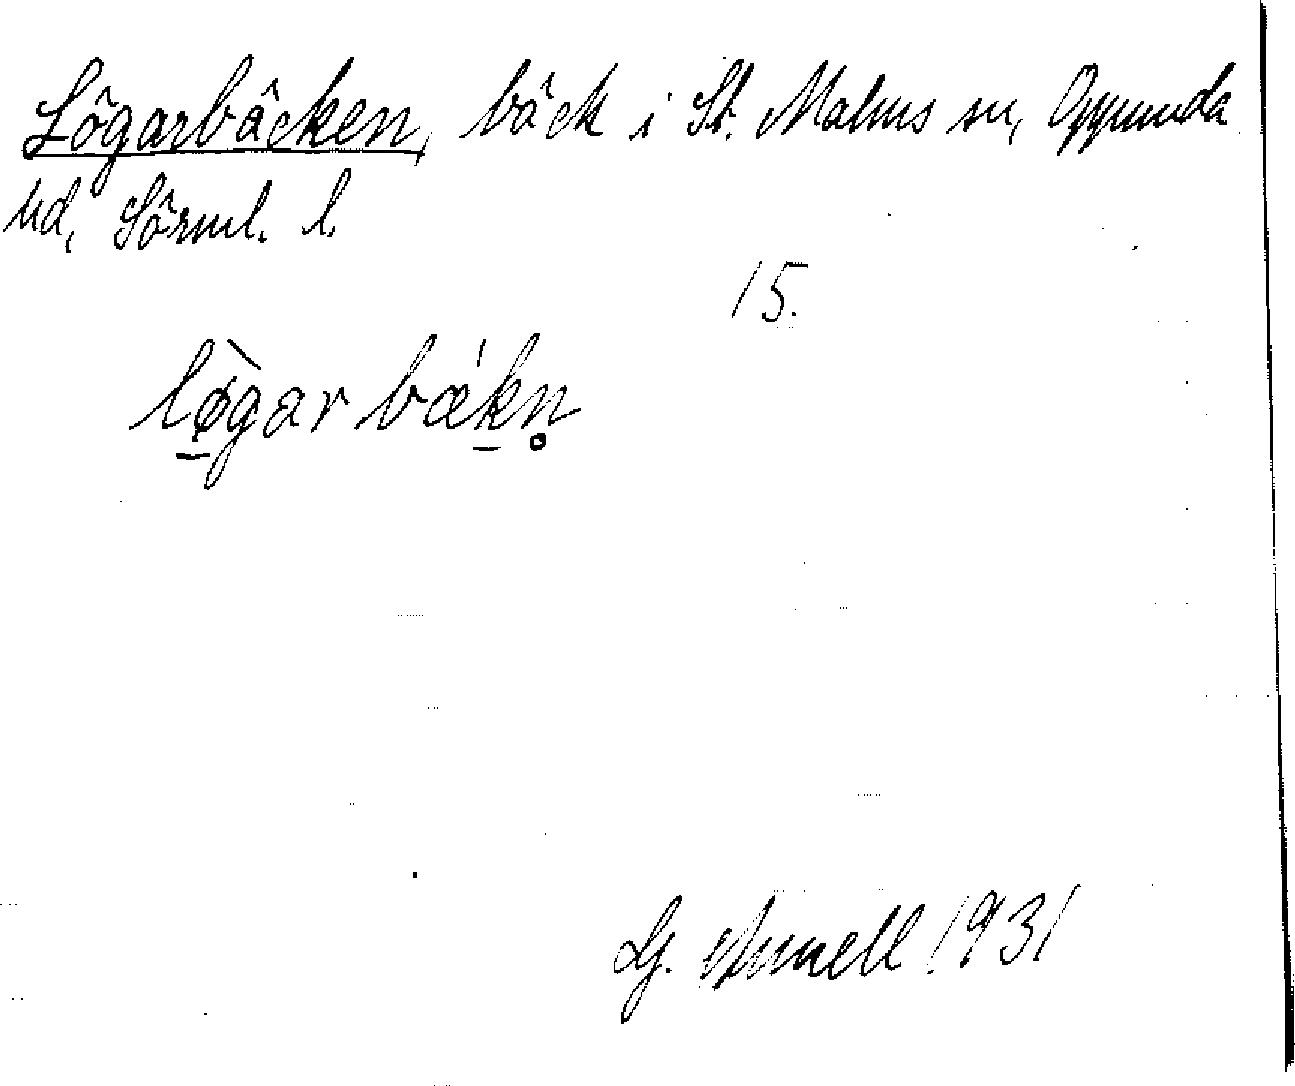 Lögarbäcken, bäck i St. Malms sn, Oppunda
hd, Sörml. l.
15.
lø̀garbǽkn̥
G. Arnell 1931